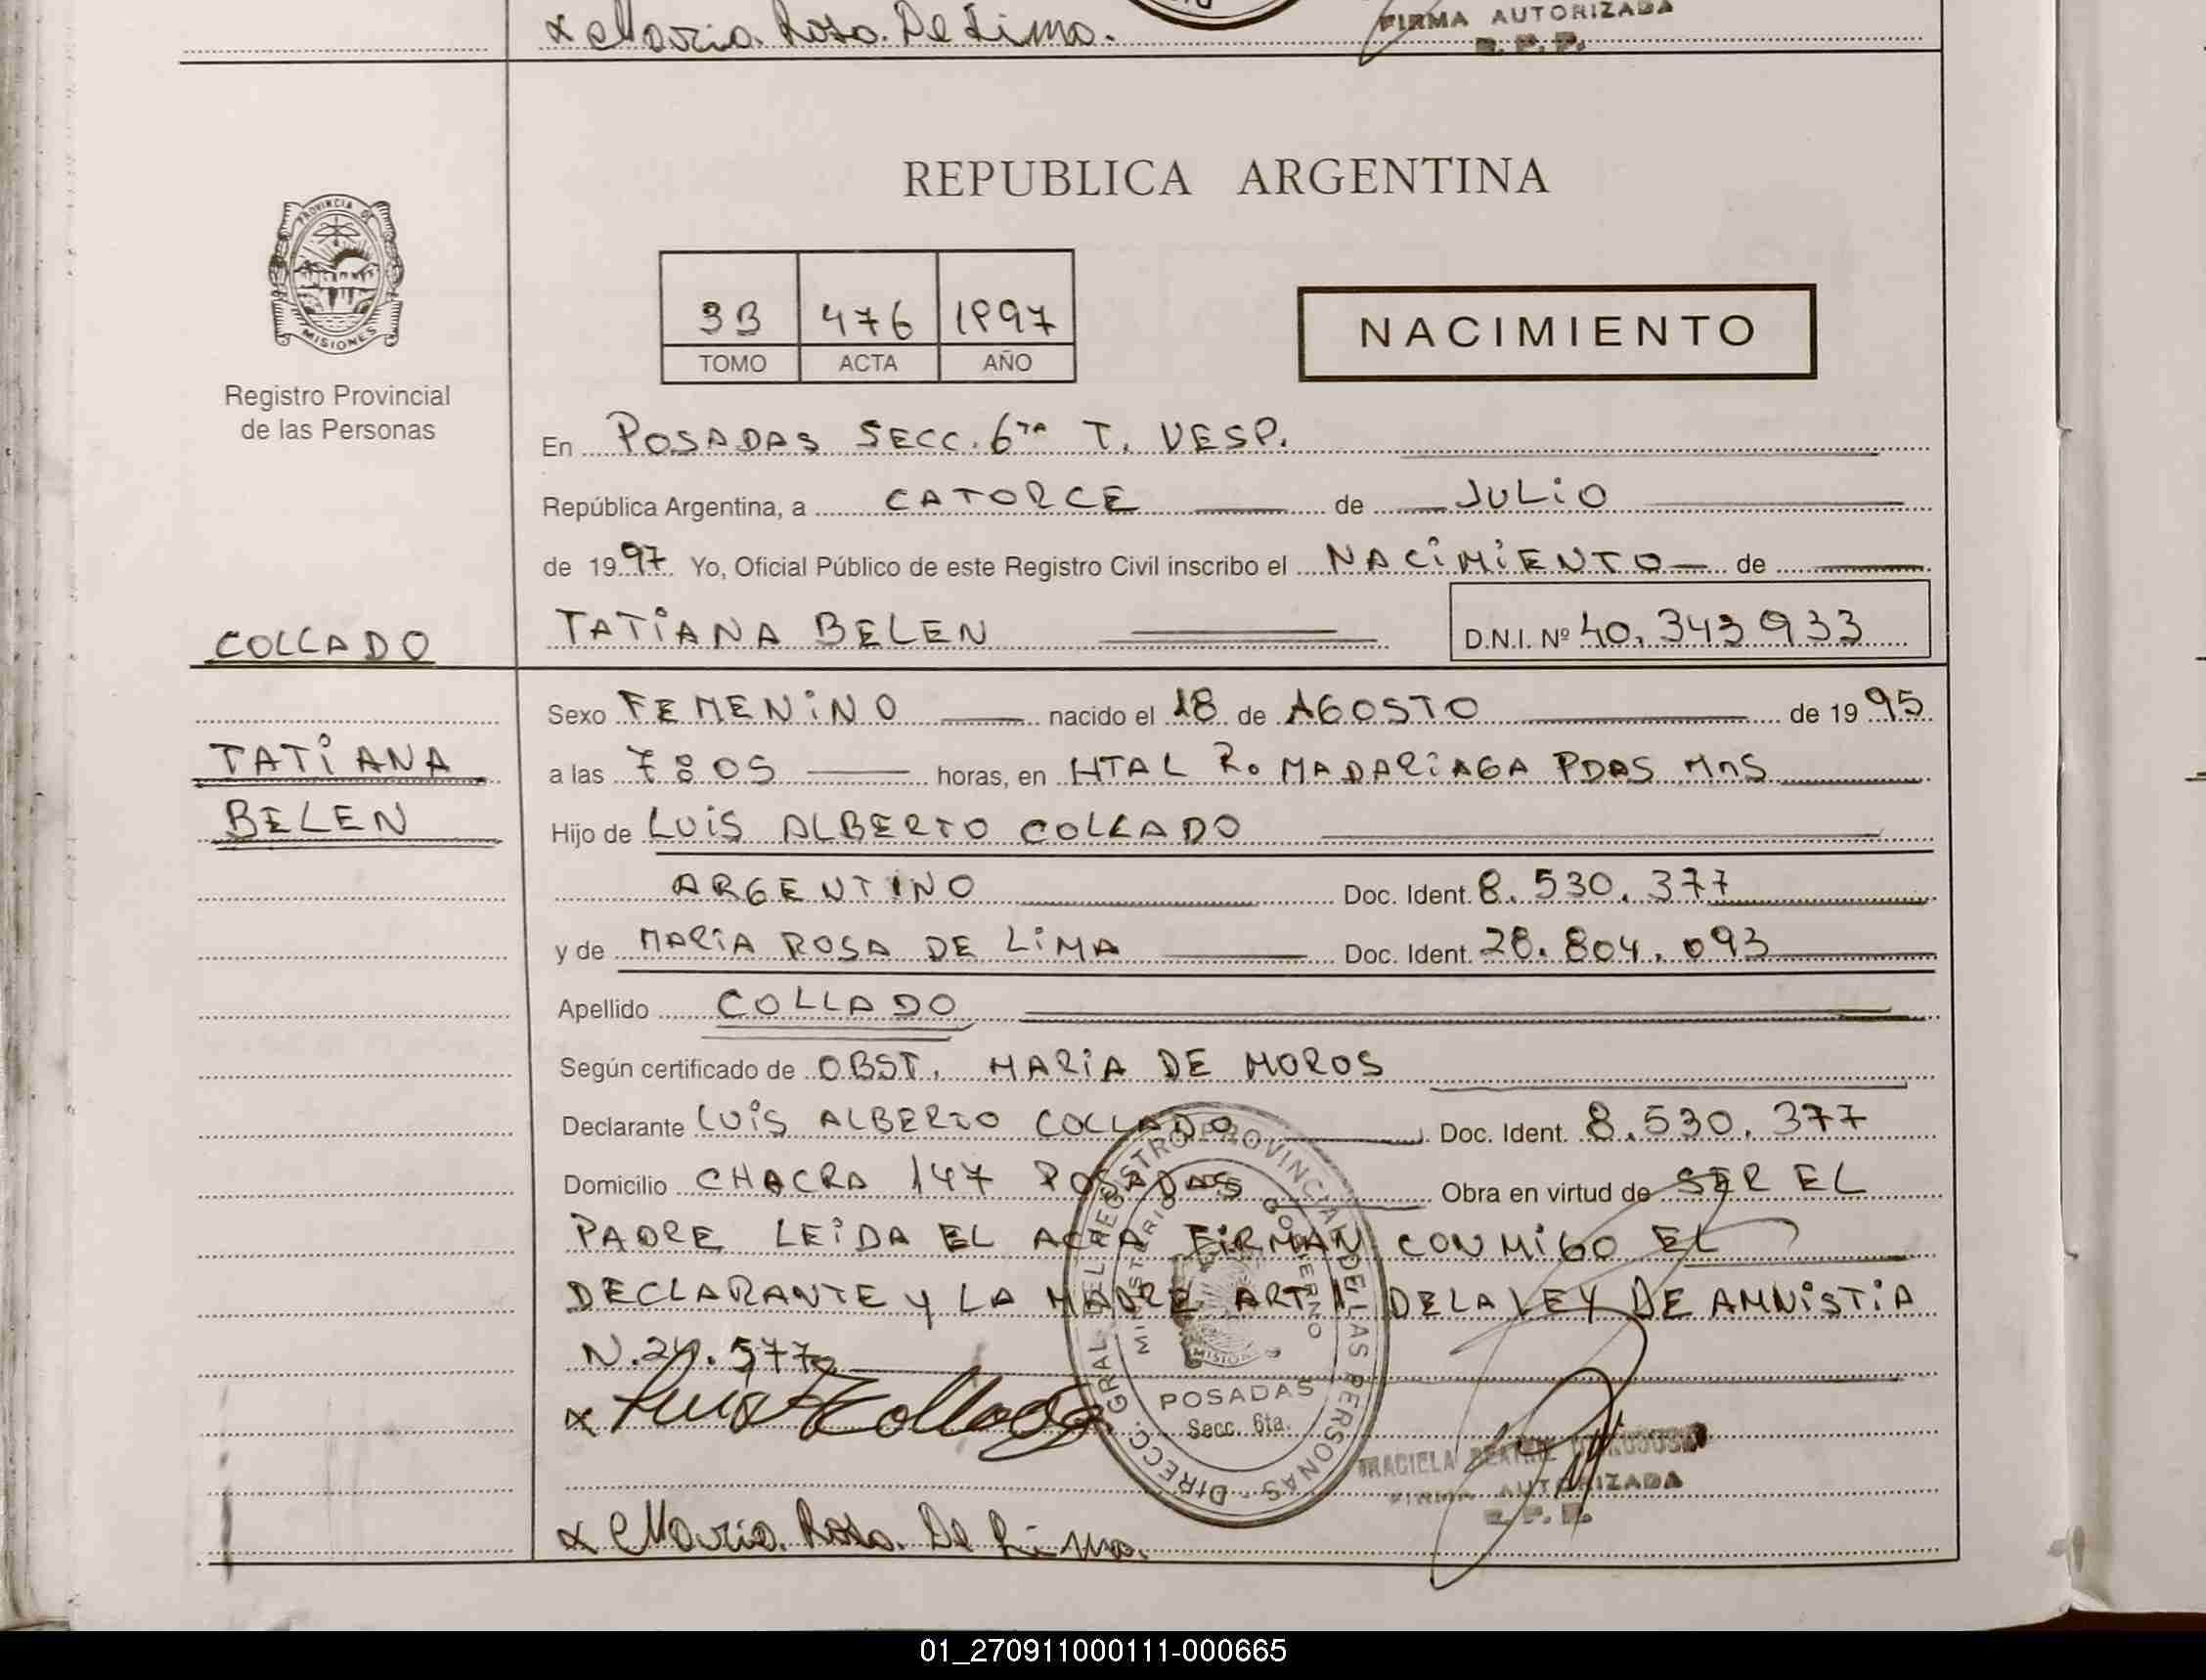 x Maria Rosa De Lima.
FIRMA AUTORIZADA
R. P. P.
PROVINCIA DE
MISIONES
Registro Provincial
de las Personas
REPUBLICA ARGENTINA
3B 476 1997
TOMO ACTA AÑO
NACIMIENTO
En POSADAS SECC. 6TA T. VESP.
República Argentina, a CATORCE de JULiO
de 1997 Yo, Oficial Público de este Registro Civil inscribo el NACiMiENTO de
COLLADO
TATiANA BELEN D.N.I. Nº 40.343933
Sexo FEMENiNO nacido el 18 de AGOSTO de 1995
TATiANA
a las 7:05 horas, en HTAL R. MADARiAGA PDAS MnS
BELEN
Hijo de LUiS ALBERTO COLLADO
ARGENTINO Doc. Ident. 8.530.377
y de MARiA ROSA DE LiMA Doc. Ident. 28.804.093
Apellido COLLADO
Según certificado de OBST. MARiA DE MOROS
Declarante LUiS ALBERTO COLLADO Doc. Ident. 8.530.377
Domicilio CHACRA 147 POSADAS Obra en virtud de SER EL
PADRE LEiDA EL ACTA FiRMAN CONMiGO EL
DECLARANTE y LA MADRE ART 1 DE LA LEY DE AMNiSTiA
N.24.577
x Luis Collado
DIRECC. GRAL. DEL REGISTRO PROVINCIAL DE LAS PERSONAS
MINISTERIO GOBIERNO
MISIONES
POSADAS
Secc. 6ta.
GRACIELA BEATRIZ
FIRMA AUTORIZADA
R. P. P.
x Maria Rosa De Lima.
01_270911000111-000665